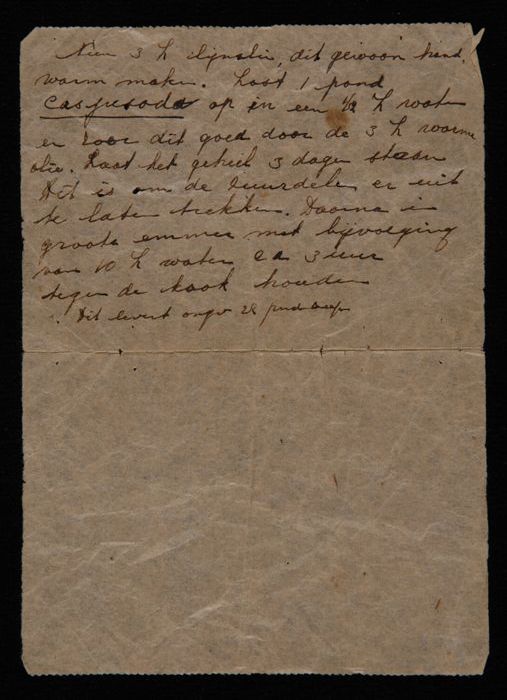 Neem 3 L lijnolie, dit gewoon hand
warm maken. Lost 1 pond
Caspesoda op in een 1/2 L water
en roer dit goed door de 3 L warme
olie. Laat het geheel 3 dagen staan
Dit is om de zuurdelen er uit
te laten trekken. Daarna in
groote emmer met bijvoeging
van 10 L water ca 3 uur
tegen de kook houden
Dit levert ongv 28 pond zeep